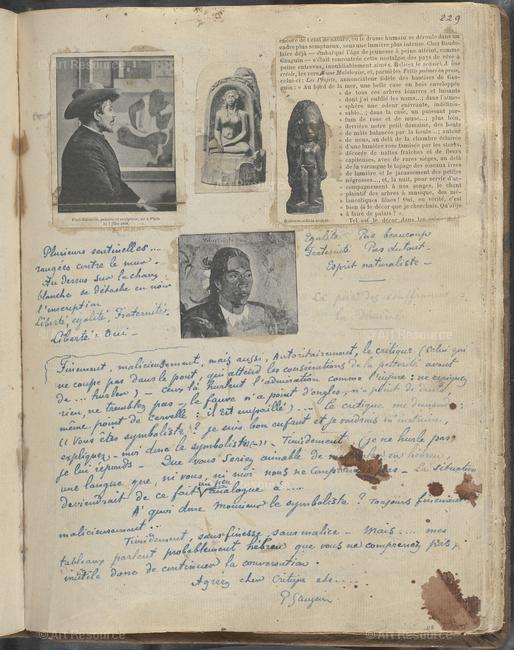 229
encore de l'état de nature, où le drame humain se déroule dans un
cadre plus somptueux, sous une lumière plus intense. Chez Baude-
laire déjà — embarqué à l'âge de jeunesse à peine atteint, comme
Gauguin — s'était rencontrée cette nostalgie des pays de rêve à
peine entrevus, inoubliables désormais. Relisez le sonnet A une
créole, les vers A une Malabaraise, et, parmi les Petits poèmes en prose,
celui-ci: Les Projets,
« Au bord de la mer, une belle case en bois enveloppée
« de tous ces arbres bizarres et luisants
dont j'ai oublié les noms...; dans l'atmo-
sphère une odeur enivrante, indéfinis-
sable...; dans la case, un puissant par-
fum de rose et de musc...; plus loin,
derrière notre petit domaine, des bouts
de mâts balancés par la houle...; autour
de nous, au delà de la chambre éclairée
d'une lumière rose tamisée par les stores,
décorée de nattes fraîches et de fleurs
capiteuses, avec de rares sièges, au delà
de la varangue le tapage des oiseaux ivres
de lumière et le jacassement des petites
négresses..., et, la nuit, pour servir d'ac-
compagnement à mes songes, le chant
plaintif des arbres à musique, des mé-
lancoliques filaos! Oui, en vérité, c'est
bien là le décor que je cherchais. Qu'ai-je
à faire de palais? »
Tel est le décor dans
Paul Gauguin, peintre et sculpteur, né à Paris
Plusieurs sentinelles...
rangées contre le mur.
Au dessus sur la chaux
blanche se détache en noir
l'inscription.
Liberté, égalité, Fraternité.
Liberté: Oui —
Egalité Pas beaucoup
Fraternité Pas du tout.
Esprit naturaliste —
Le des souffrances
la dernière
Finement, malicieusement, mais aussi, Autoritairement, le critique (celui qui
ne coupe pas dans le pont, qui attend les consécrations de la postérité avant
de ... hurler) — ceux là hurlent l'admiration comme l'injure: ne craignez
rien, ne tremblez pas — le fauve n'a point d'ongles, n'a point de dents,
même point de cervelle: il est empaillé) .... le critique me demande
((Vous êtes symboliste? je suis bon enfant et je voudrais m'instruire,
expliquez-moi donc le symbolisme)) — Timidement, (je ne hurle pas)
je lui réponds — Que vous seriez aimable de me parler en hébreu,
une langue que, ni vous, ni moi nous ne comprenons — La situation
deviendrait de ce fait un peu analogue à ....
A quoi dire Monsieur le symboliste? Toujours finement
malicieusement...
Timidement, sans finesse, sans malice — Mais.... mes
tableaux parlent probablement hébreu que vous ne comprenez pas,
inutile donc de continuer la conversation.
Agréez cher Critique etc.....
P Gauguin
© Art Resource
© Art Resource
© Art Resource
© Art Resource